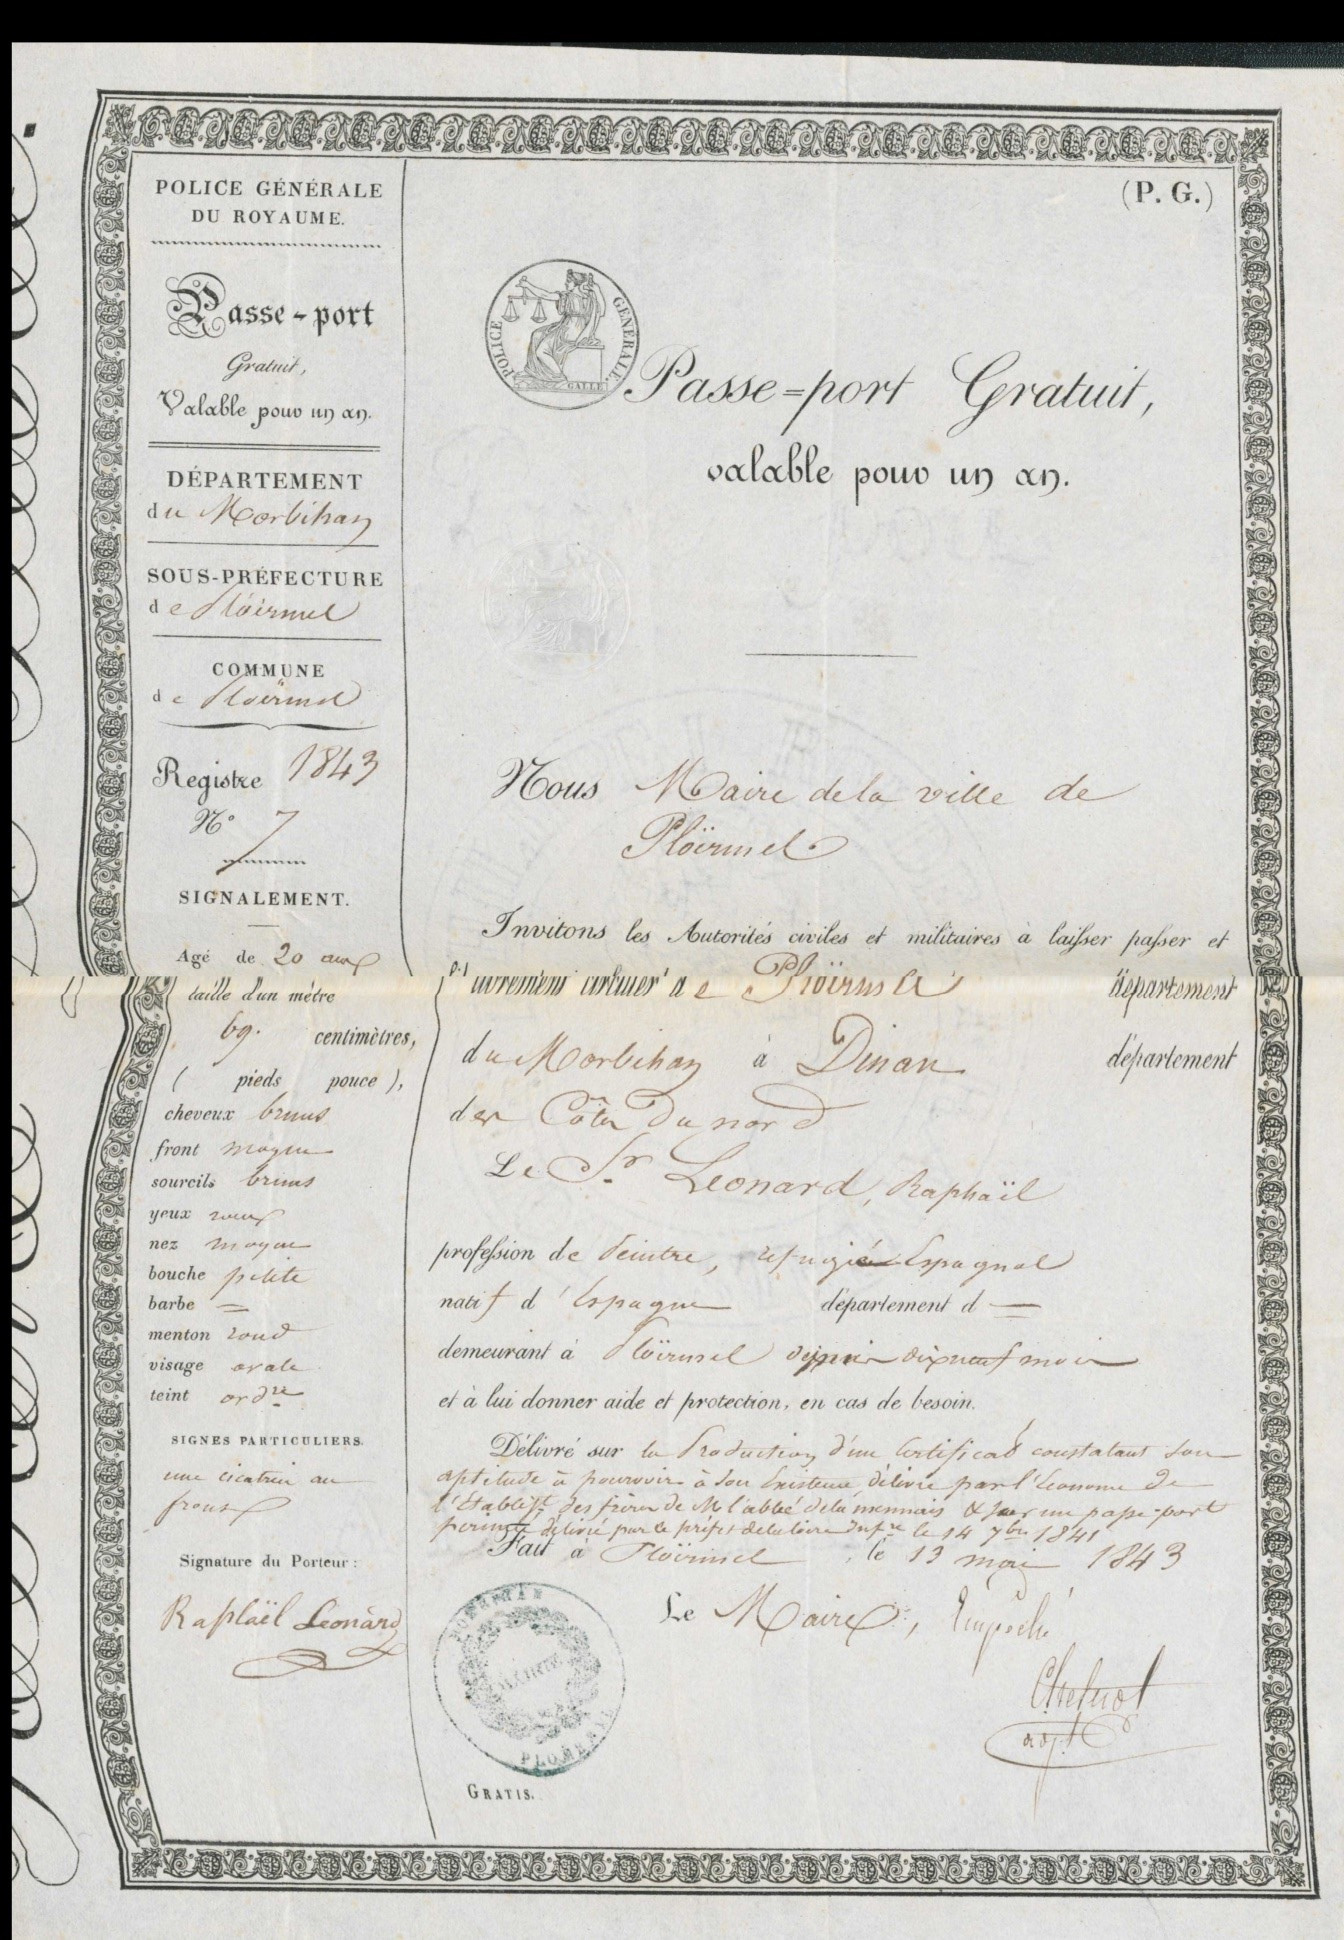 POLICE GÉNÉRALE
DU ROYAUME.
Passe-port
Gratuit,
Valable pour un an.
DÉPARTEMENT
du Morbihan
SOUS-PRÉFECTURE
de Ploërmel
COMMUNE
de Ploërmel
Registre 1843
N° 7
SIGNALEMENT.
Agé de 20 ans
taille d'un mètre
69. centimètres,
( pieds pouce ),
cheveux bruns
front moyen
sourcils bruns
yeux roux
nez moyen
bouche petite
barbe =
menton rond
visage ovale
teint ordre
SIGNES PARTICULIERS.
une cicatrice au
front
Signature du Porteur :
Raphaël Leonard
(P. G.)
POLICE GÉNÉRALE.
GALLE
Passe=port Gratuit,
valable pour un an.
Nous Maire de la ville de
Ploërmel
Invitons les Autorités civiles et militaires à laisser passer et
librement circuler de Ploërmel département
du Morbihan à Dinan département
des Côtes du nord
Le Sr. Leonard, Raphaïl
profession de Peintre, refugié Espagnol
natif d'Espagne département d —
demeurant à Ploërmel depuis dixneuf mois
et à lui donner aide et protection, en cas de besoin.
Délivré sur la Production d'un Certificat constatant son
aptitude à pourvoir à son Existence, délivré par l'économe de
l'établisst des frères de Mr l'abbé de la mennais & sur un passe-port
périmé délivré par le préfet de la loire Infre le 14 7bre 1841
Fait à Ploërmel, le 13 mai 1843
Le Maire, Empêché
adjt
MORBIHAN
MAIRIE
PLOERMEL
GRATIS.